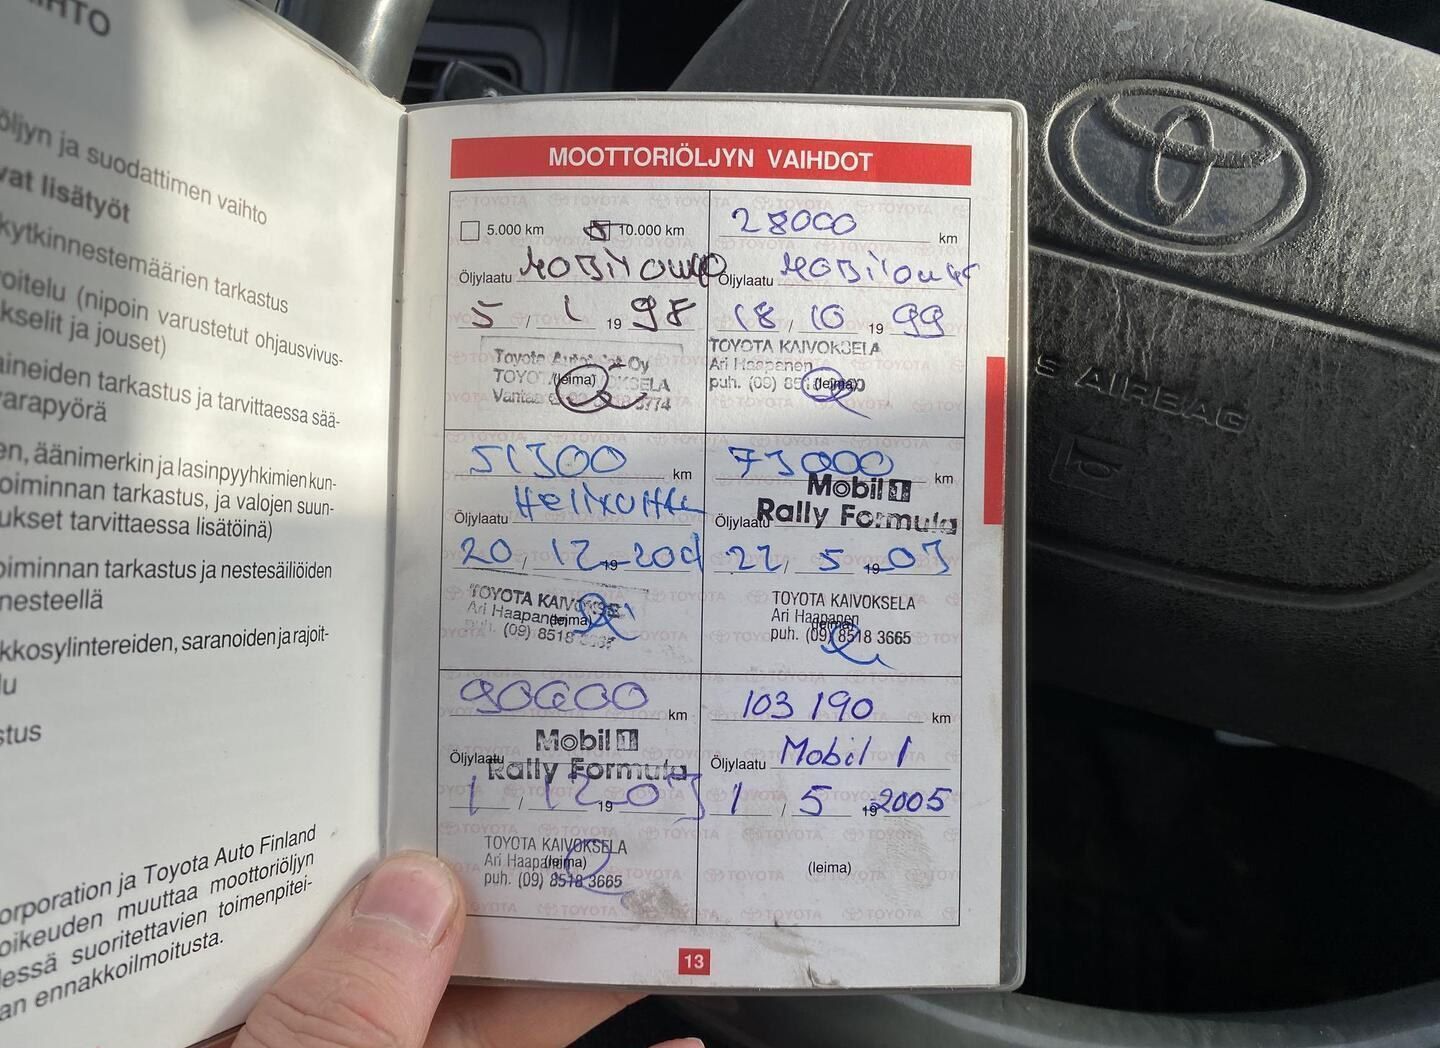 IHTO
öljyn ja suodattimen vaihto
vat lisätyöt
kytkinnestemäärien tarkastus
oitelu (nipoin varustetut ohjausvivus-
kselit ja jouset)
aineiden tarkastus ja tarvittaessa sää-
varapyörä
en, äänimerkin ja lasinpyyhkimien kun-
oiminnan tarkastus, ja valojen suun-
ukset tarvittaessa lisätöinä)
oiminnan tarkastus ja nestesäiliöiden
nesteellä
kkosylintereiden, saranoiden ja rajoit-
lu
stus
orporation ja Toyota Auto Finland
oikeuden muuttaa moottoriöljyn
dessä suoritettavien toimenpitei-
an ennakkoilmoitusta.
MOOTTORIÖLJYN VAIHDOT
5.000 km 10.000 km
Öljylaatu
5 / 1 19 98
Toyota Oy
(leima)
Vantaa
28000 km
Öljylaatu
18 / 10 19 99
TOYOTA KAIVOKSELA
Ari Haapanen
puh. (09) (leima)
51300 km
Öljylaatu
20 / 12 19
TOYOTA KAIVOKSE
Ari Haapanen (leima)
puh. (09) 8518 3665
73000 km
Mobil 1
Öljylaatu Rally Formula
22 / 5 19 03
TOYOTA KAIVOKSELA
Ari Haapanen (leima)
puh. (09) 8518 3665
90600 km
Mobil 1
Öljylaatu Rally Formula
1 / 12 19 03
TOYOTA KAIVOKSELA
Ari Haapanen (leima)
puh. (09) 8518 3665
103 190 km
Öljylaatu Mobil 1
1 / 5 19 2005
(leima)
13
S AIRBAG